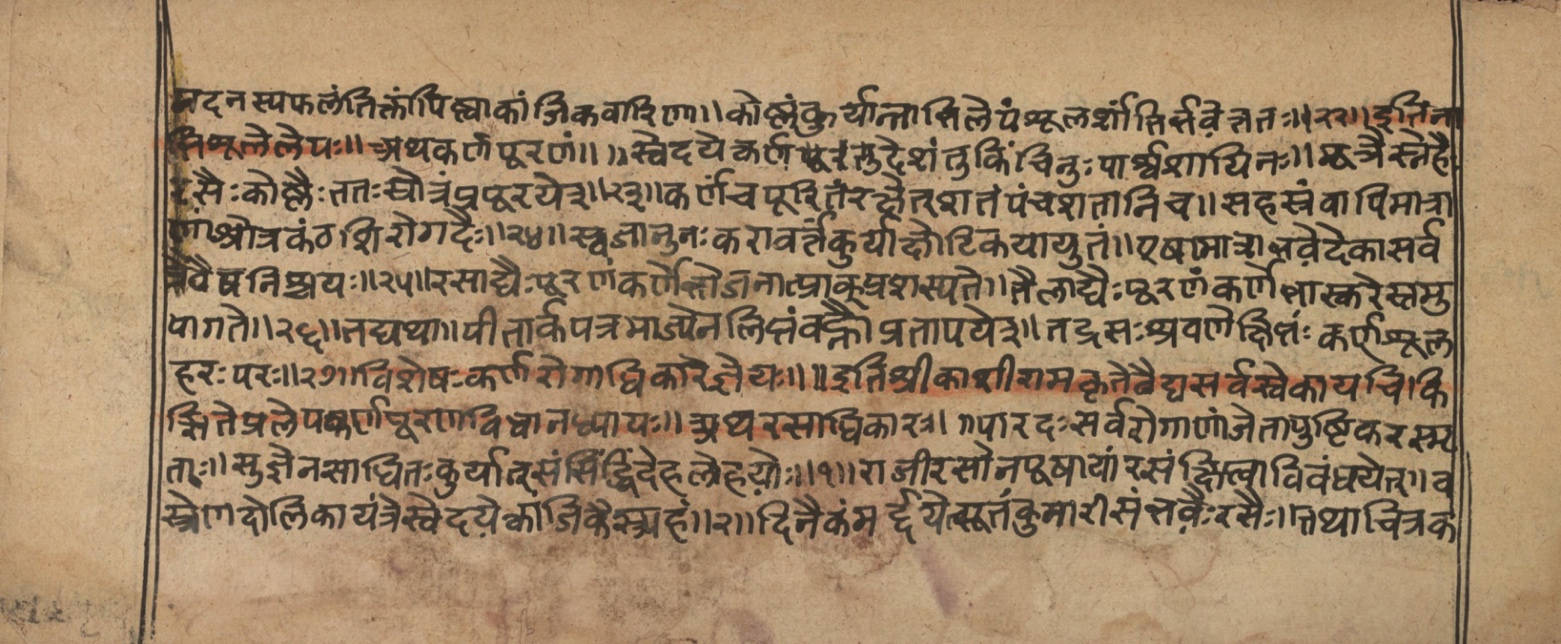 मदनस्यफलंतिक्तांपिष्ट्वाकांजिकवारिणा॥कोष्णंकुर्यान्नाभिलेपंशूलशांतिर्भवेत्ततः॥२२॥इतिना
भिशूलेलेपः॥अथकर्णपूरणं॥॥स्वेदयेकर्णमूलंतुदेशंतुकिंचिनुःपार्श्वशायिनः॥मूत्रैस्नेहै
रसैःकोष्णैःततःश्रोत्रंप्रपूरयेत्॥२३॥कर्णंचपूरितंरक्षेत्शतंपंचशतानिच॥सहस्रंवापिमात्रा
णांश्रोत्रकंठशिरोगदैः॥२४॥स्वजानुनःकरावर्तंकुर्याच्छोटिकयायुतं॥एषामात्राभवेदेकासर्व
त्रैवैषनिश्चयः॥२५॥रसाद्यैःपूरणंकर्णेभोजनात्प्राक्प्रशस्यते॥तैलाद्यैःपूरणंकर्णेभास्करेस्तमु
पागते॥२६॥तद्यथा॥पीतार्कपत्रमाज्येनलिप्तंवह्नौप्रतापयेत्॥तद्रसःश्रवणेक्षिप्तंःकर्णशूल
हरःपरः॥२७॥विशेषःकर्णरोगाधिकारेज्ञेयः॥॥इतिश्रीकाशीरामकृतेवैद्यसर्वस्वेकायचिकि
त्सितेप्रलेपकर्णपूरणविधानध्यायः॥अथरसाधिकारः।॥पारदःसर्वरोगाणांजेतापुष्टिकरस्मृ
ताः॥सुज्ञेनसाधितःकुर्यात्संसिद्धिंदेहलोहयोः॥१॥राजीरसोनमूषायांरसंक्षिप्त्वाविबंधयेत्॥व
स्त्रेणदोलिकायंत्रेस्वेदयेत्कांजिकैस्त्र्यहं॥२॥दिनैकंमर्द्दयेत्सूतंकुमारीसंभवैःरसैः॥तथाचित्रक